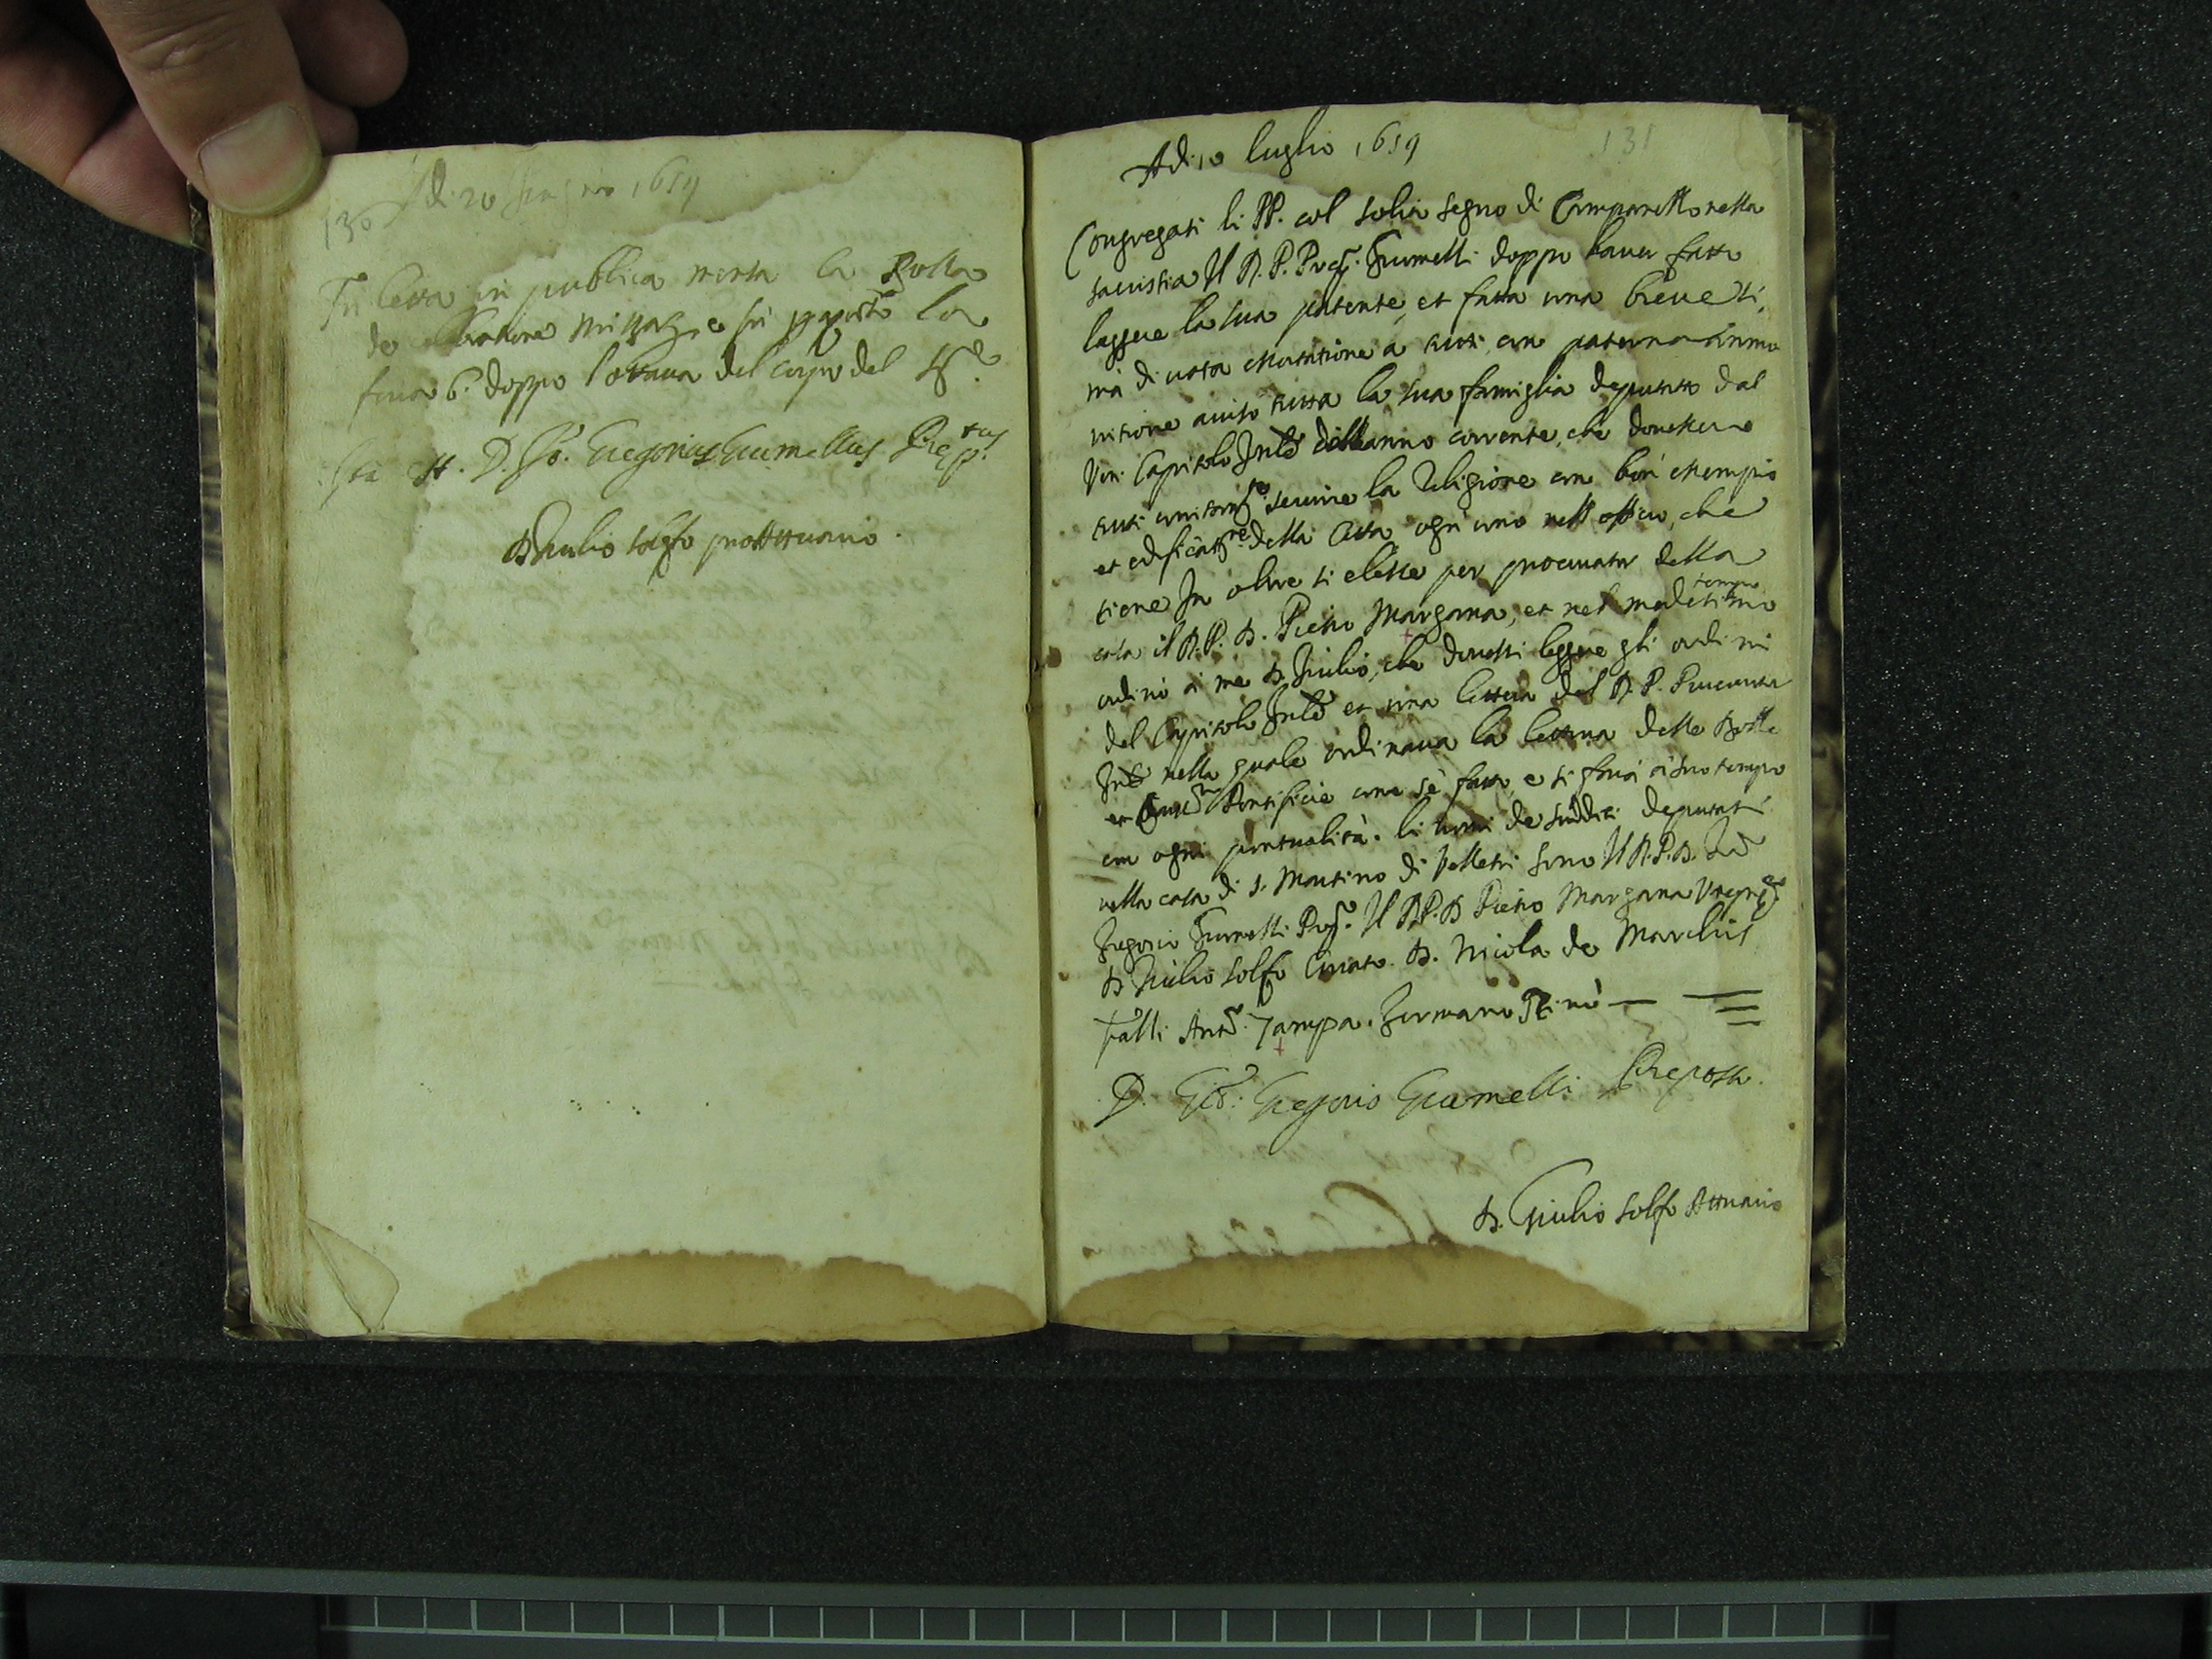 130
Adi 20 Giugno 1659
Fu letta in publica mensa la Bolla
de celebratione missar. e fù proposto la
feria 6.a doppo l'ottava del corpo del Sig.re
Ita est. D. Jo. Gregorius Grumellus Prep.tus
D. Giulio Solfo pro Attuario.
131
Adi 10 luglio 1659
Congregati li PP. col solito segno di Campanello nella
sacristia Il R. P. Prep.to Grumelli doppo haver fatto
leggere la sua patente, et fatta una breve si,
mà divota esortatione à tutti con paterna ammo
nitione avisò tutta la sua famiglia deputata dal
Ven. Capitolo Gn̄le dell'anno corrente, che dovessero
tutti unitam.te servire la Religione con bon essempio
et edificat.ne della Città ogn'uno nell'offitio, che
tiene In oltre si elesse per procurator della
casa il R. P. D. Pietro Margana, et nel medesimo tempo
ordinò à me D. Giulio, che dovessi leggere gli ordini
del Capitolo Gn̄le et una lettera del R. P. Procurator
Gn̄le nella quale ordinava la lettura delle Bolle
et Pontificie come s'è fatto, e si farà à suo tempo
con ogni pontualità. li nomi de sudditi deputati
nella casa di S. Martino di Velletri sono Il R. P. D. Gio
Gregorio Grumelli Prep.to Il R.P. D Pietro Margana Viceprep.to
D. Giulio Solfo Curato. D. Nicola de Marchis
Fr̄elli Ant.o Zampa. Germano Pinò
D. Gio: Gregorio Grumelli Preposto.
D. Giulio Solfo Attuario